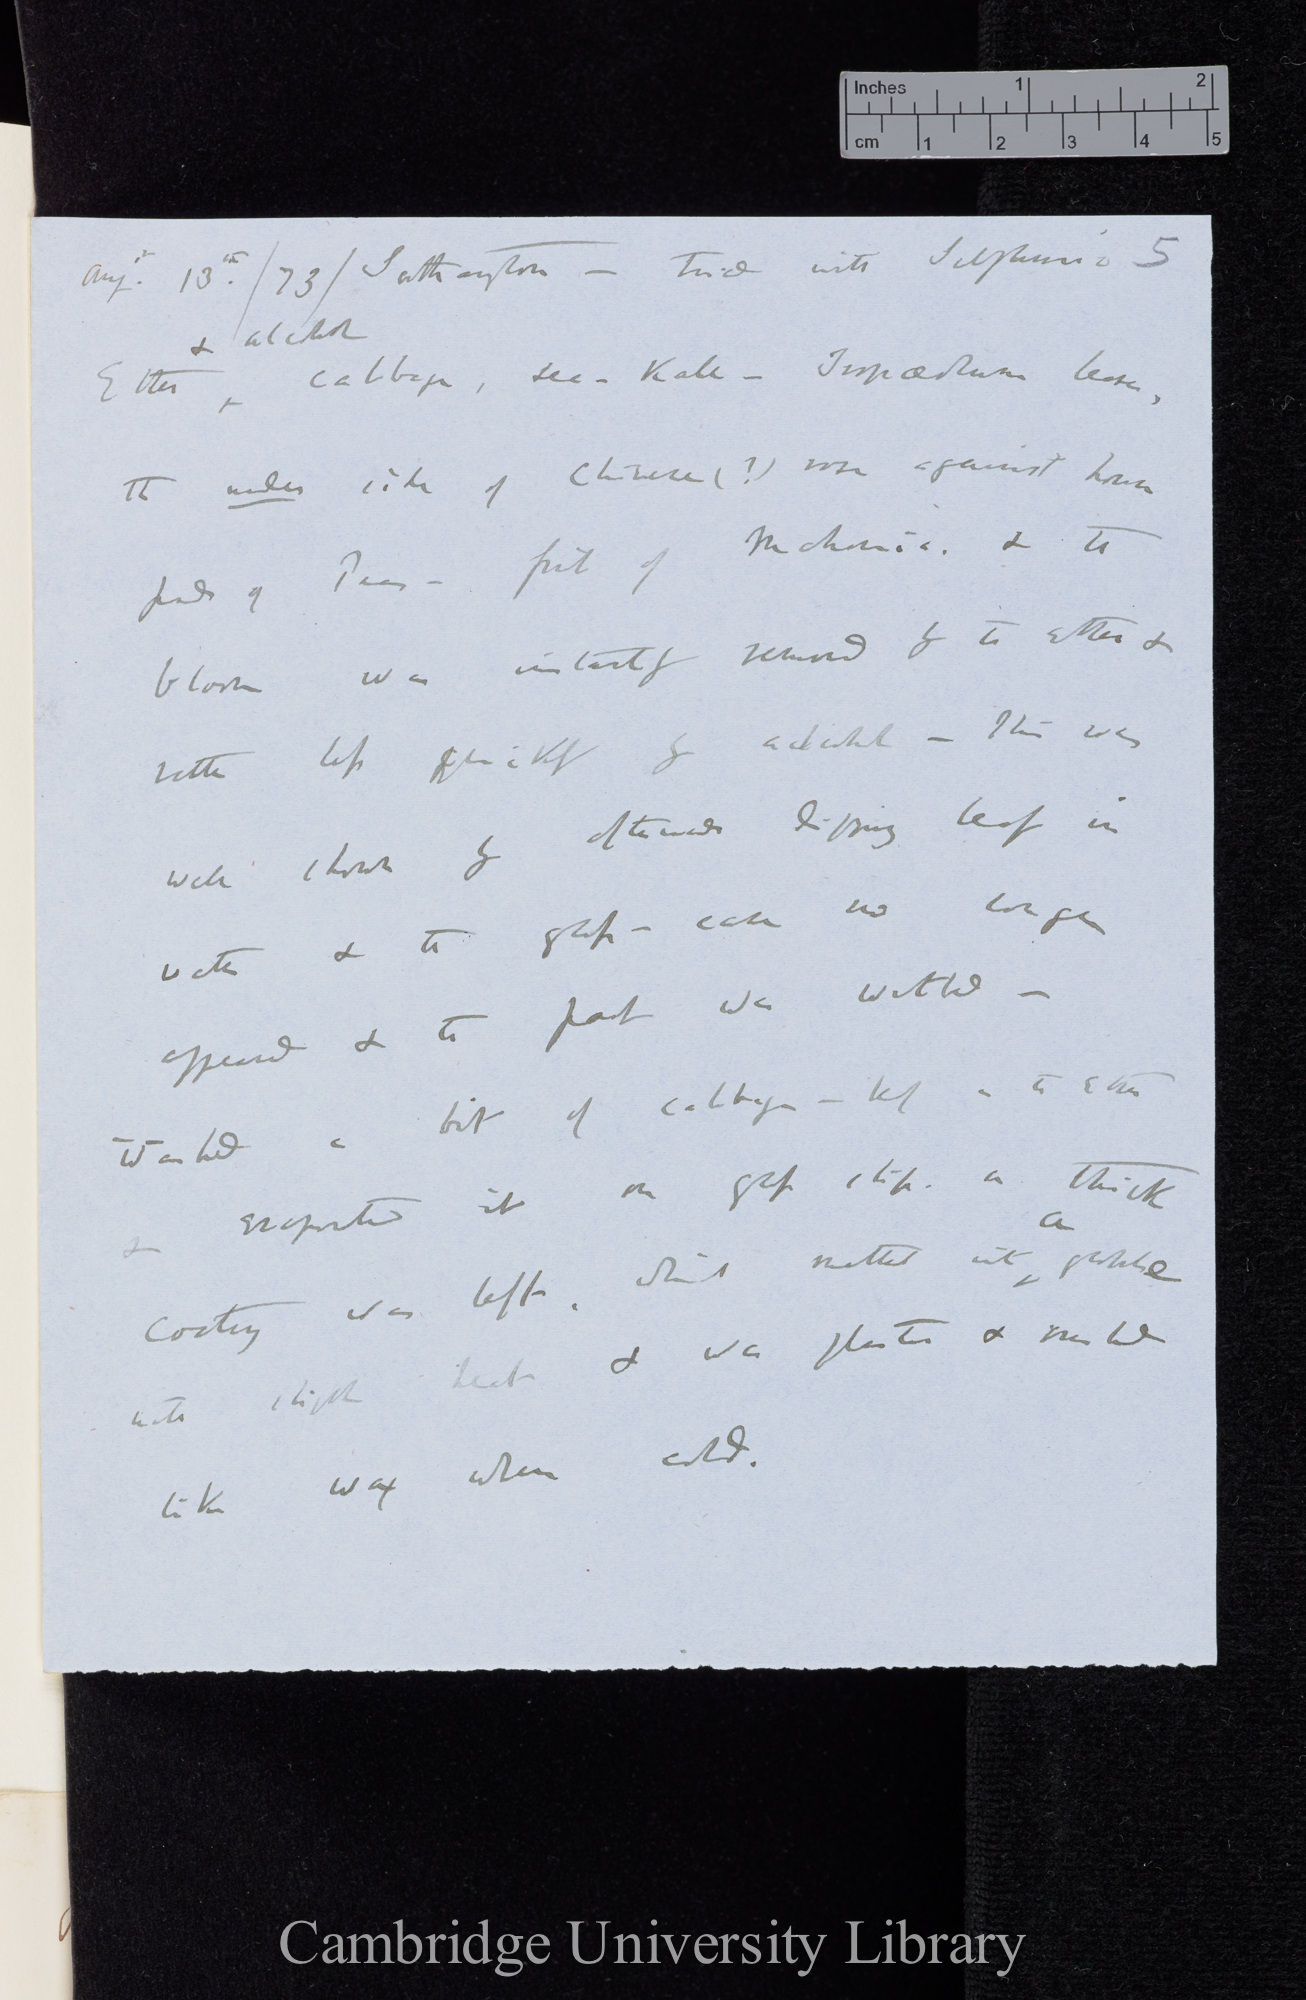 Inches 1 2
cm 1 2 3 4 5
5
Aug. 13th./73/ Southampton — Tried with Sulphuric
& alcohol
Ether, cabbage, sea-Kale — Tropæolum leaves,
the under side of Chinese (?) rose against house
pods of Peas — fruit of Mahonia. & the
bloom was instantly removed by the ether &
rather less quickly by alcohol — This was
well shown by afterwards dipping leaf in
water & the glass-case no longer
appeared & the part was wetted —
Washed a bit of cabbage-leaf in the ether
& evaporated it on glass slip. a thick
a
coating was left, which melted into globule
with slight heat & was plastic &
like wax when cold.
Cambridge University Library